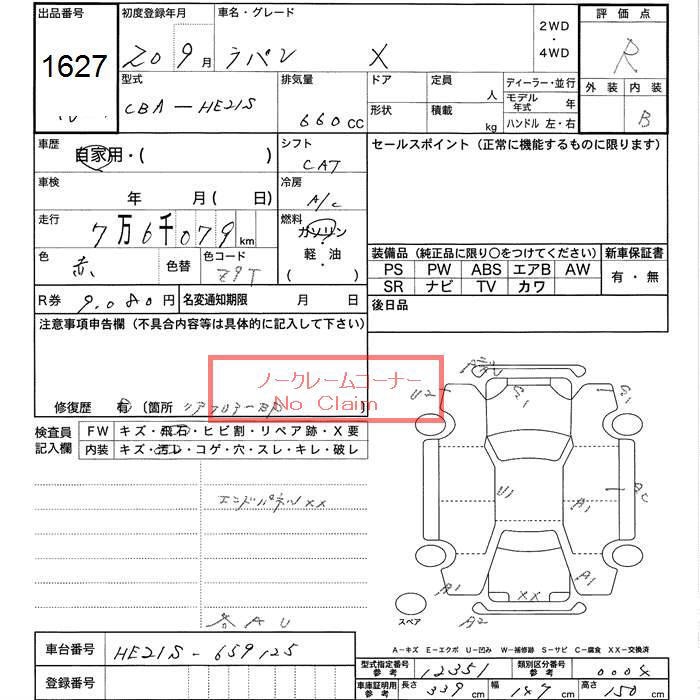 出品番号 初度登録年月 車名・グレード 2WD・4WD 評価点
1627 20 9月 ラパン X R
型式 排気量 ドア 定員 人 ディーラー・並行 外装 内装
CBA-HE21S 660CC 形状 積載 kg モデル年式 年 B
ハンドル 左・右
車歴 自家用・( ) シフト CAT セールスポイント(正常に機能するものに限ります)
車検 年 月( 日) 冷房 A/C
走行 7万6千079km 燃料 ガソリン
軽油
( )
色 赤 色替 色コード Z9T
装備品(純正品に限り○をつけてください) 新車保証書
PS PW ABS エアB AW 有・無
SR ナビ TV カワ
R券 9,080円 名変通知期限 月 日 後日品
注意事項申告欄(不具合内容等は具体的に記入して下さい)
ノークレームコーナー
No Claim
修復歴 有〔箇所 リアフロアー 〕
検査員記入欄 FW キズ・飛石・ヒビ割・リペア跡・X要
内装 キズ・汚レ・コゲ・穴・スレ・キレ・破レ
エンドパネルXX
各AU
U2 G1 G1
U1 A1 A2
A1 XX A1
A2
スペア
A-キズ E-エクボ U-凹み W-補修跡 S-サビ C-腐食 XX-交換済
車台番号 HE21S-659125
登録番号
型式指定番号参考 12351 類別区分番号参考 0004
車庫証明用参考 長さ 339cm 幅 147cm 高さ 150cm